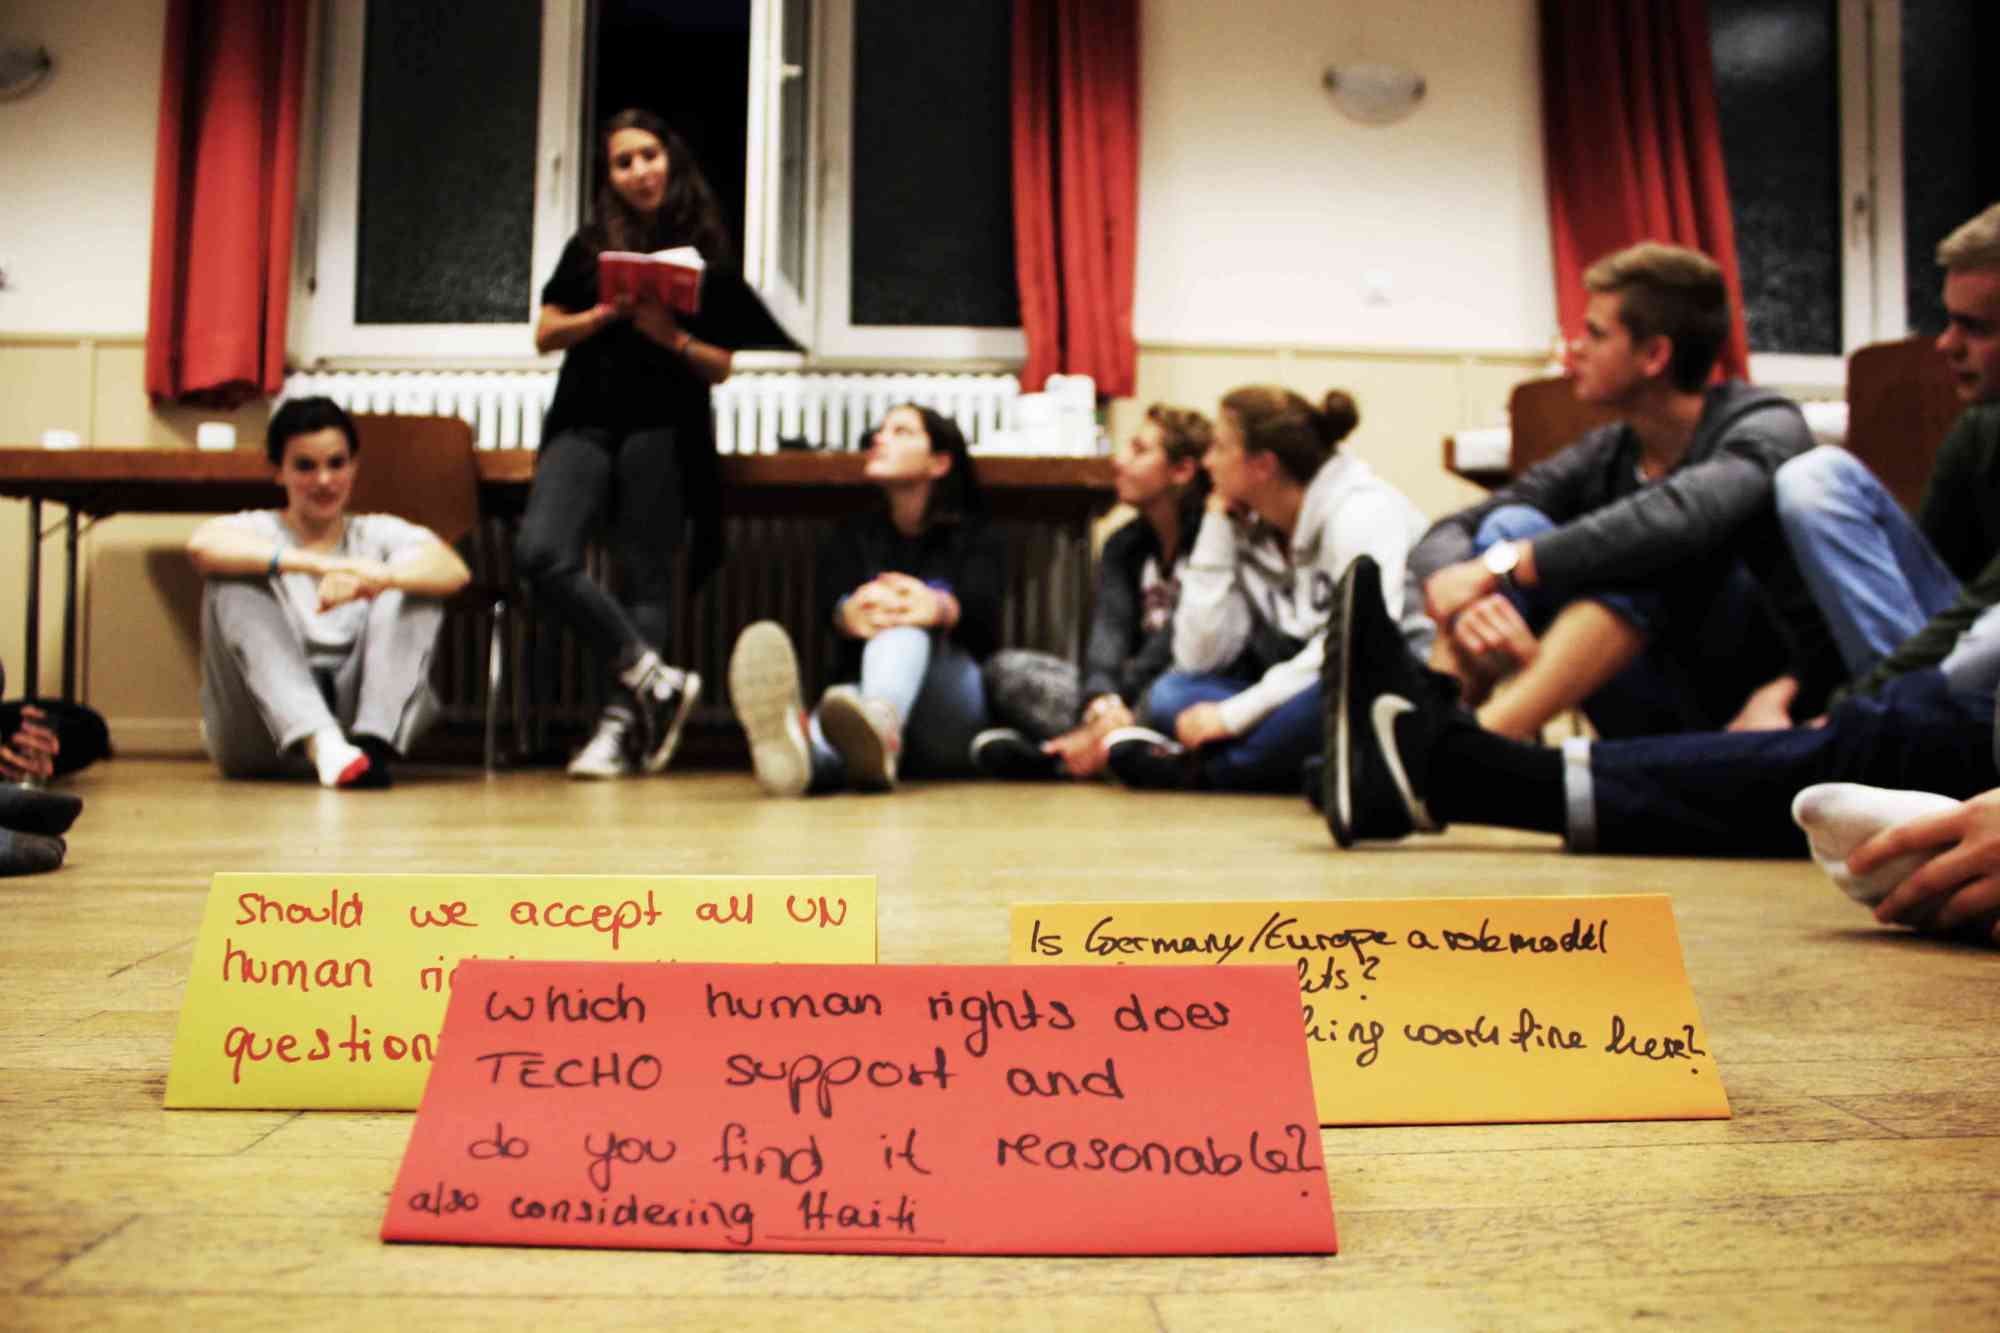 Should we accept all UN
human
question
Is Germany/Europe a rolemodel
work fine here?
which human rights does
TECHO support and
do you find it reasonable?
also considering Haiti